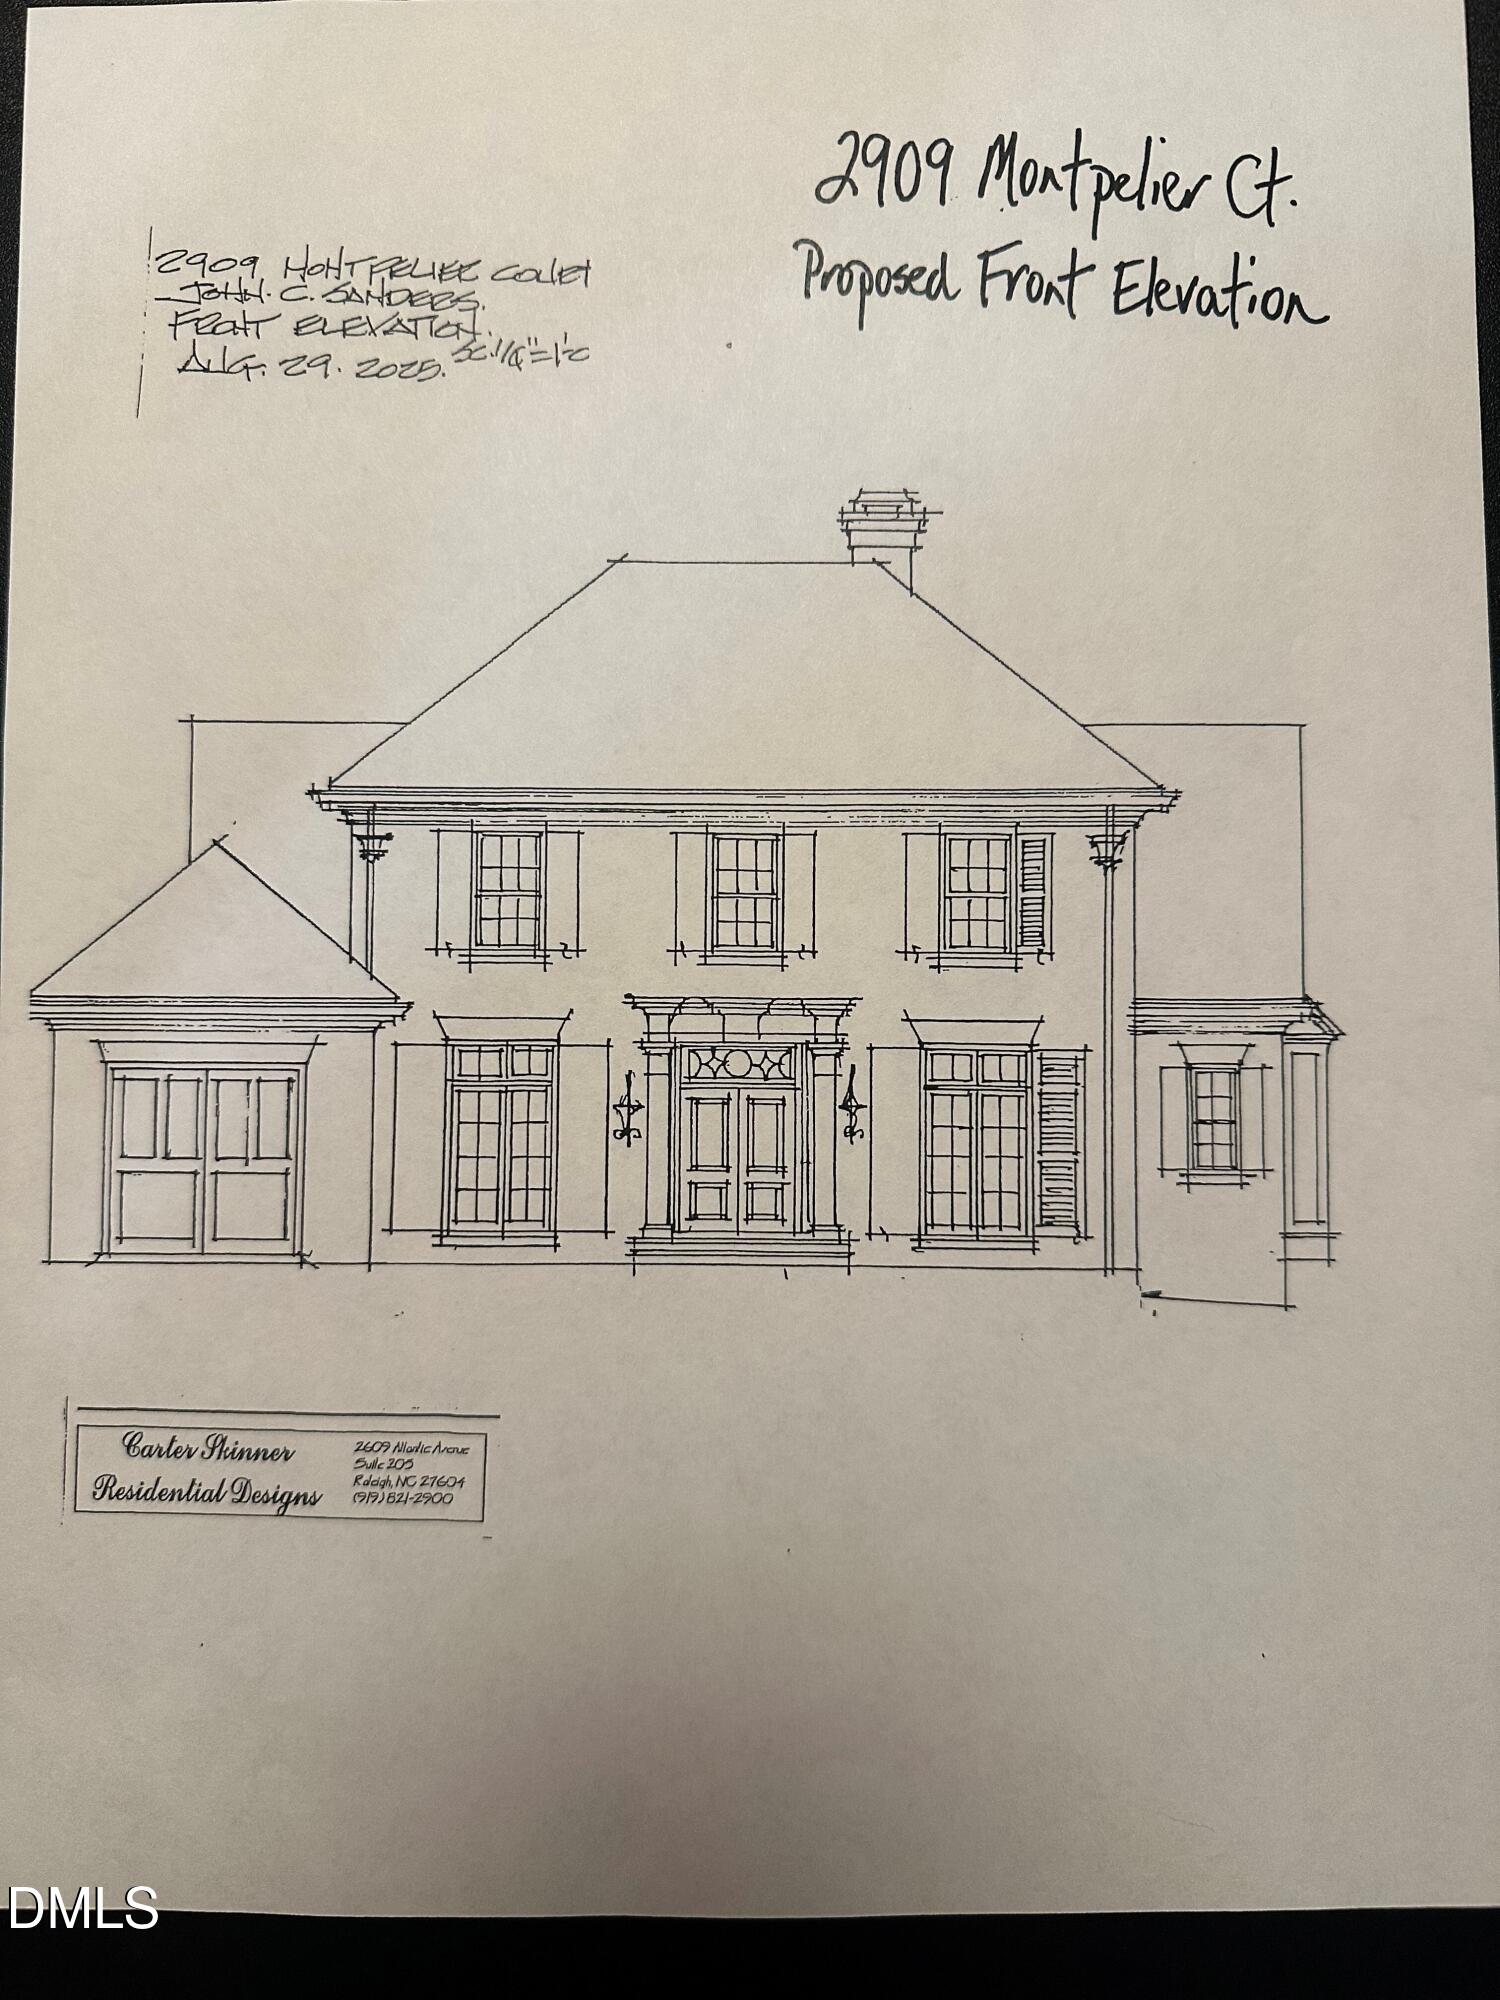 2909 Montpelier Ct.
Proposed Front Elevation
2909 MONTPELIER COURT
JOHN. C. SANDERS.
FRONT ELEVATION.
AUG. 29. 2025. SC. 1/4"=1'-0
Carter Skinner
Residential Designs
2609 Atlantic Avenue
Suite 205
Raleigh, NC 27604
(919) 821-2900
DMLS